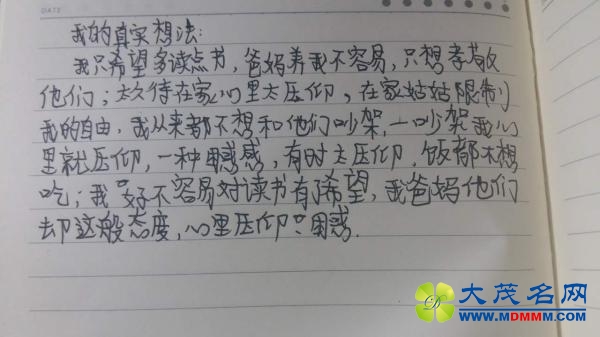 DATE
我的真实想法:
我只希望多读点书,爸妈养我不容易,只想孝敬
他们;太久待在家,心里太压仰,在家姑姑限制
我的自由,我从来都不想和他们吵架,一吵架我心
里就压仰,一种困惑感,有时太压仰,饭都不想
吃;我好不容易对读书有了希望,我爸妈他们
却这般态度,心里压仰:困惑.
大茂名网
WWW.MDMMM.COM